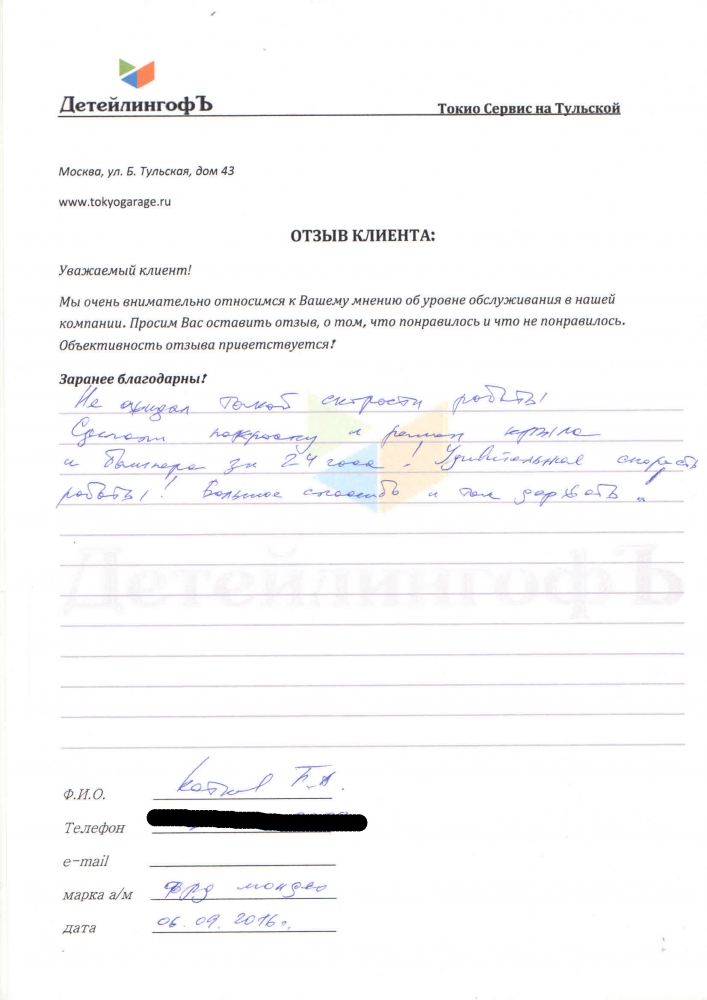 ДетейлингофЪ
Токио Сервис на Тульской
Москва, ул. Б. Тульская, дом 43
www.tokyogarage.ru
ОТЗЫВ КЛИЕНТА:
Уважаемый клиент!
Мы очень внимательно относимся к Вашему мнению об уровне обслуживания в нашей
компании. Просим Вас оставить отзыв, о том, что понравилось и что не понравилось.
Объективность отзыва приветствуется!
Заранее благодарны!
Не ожидал такой скорости работы
Сделали покраску и ремонт крыла
и бампера за 24 часа! Удивительная скорость
работы! Большое спасибо и так держать
ДетейлингофЪ
Ф.И.О.
Телефон
e-mail
марка а/м Форд мондео
дата 06.09.2016г.